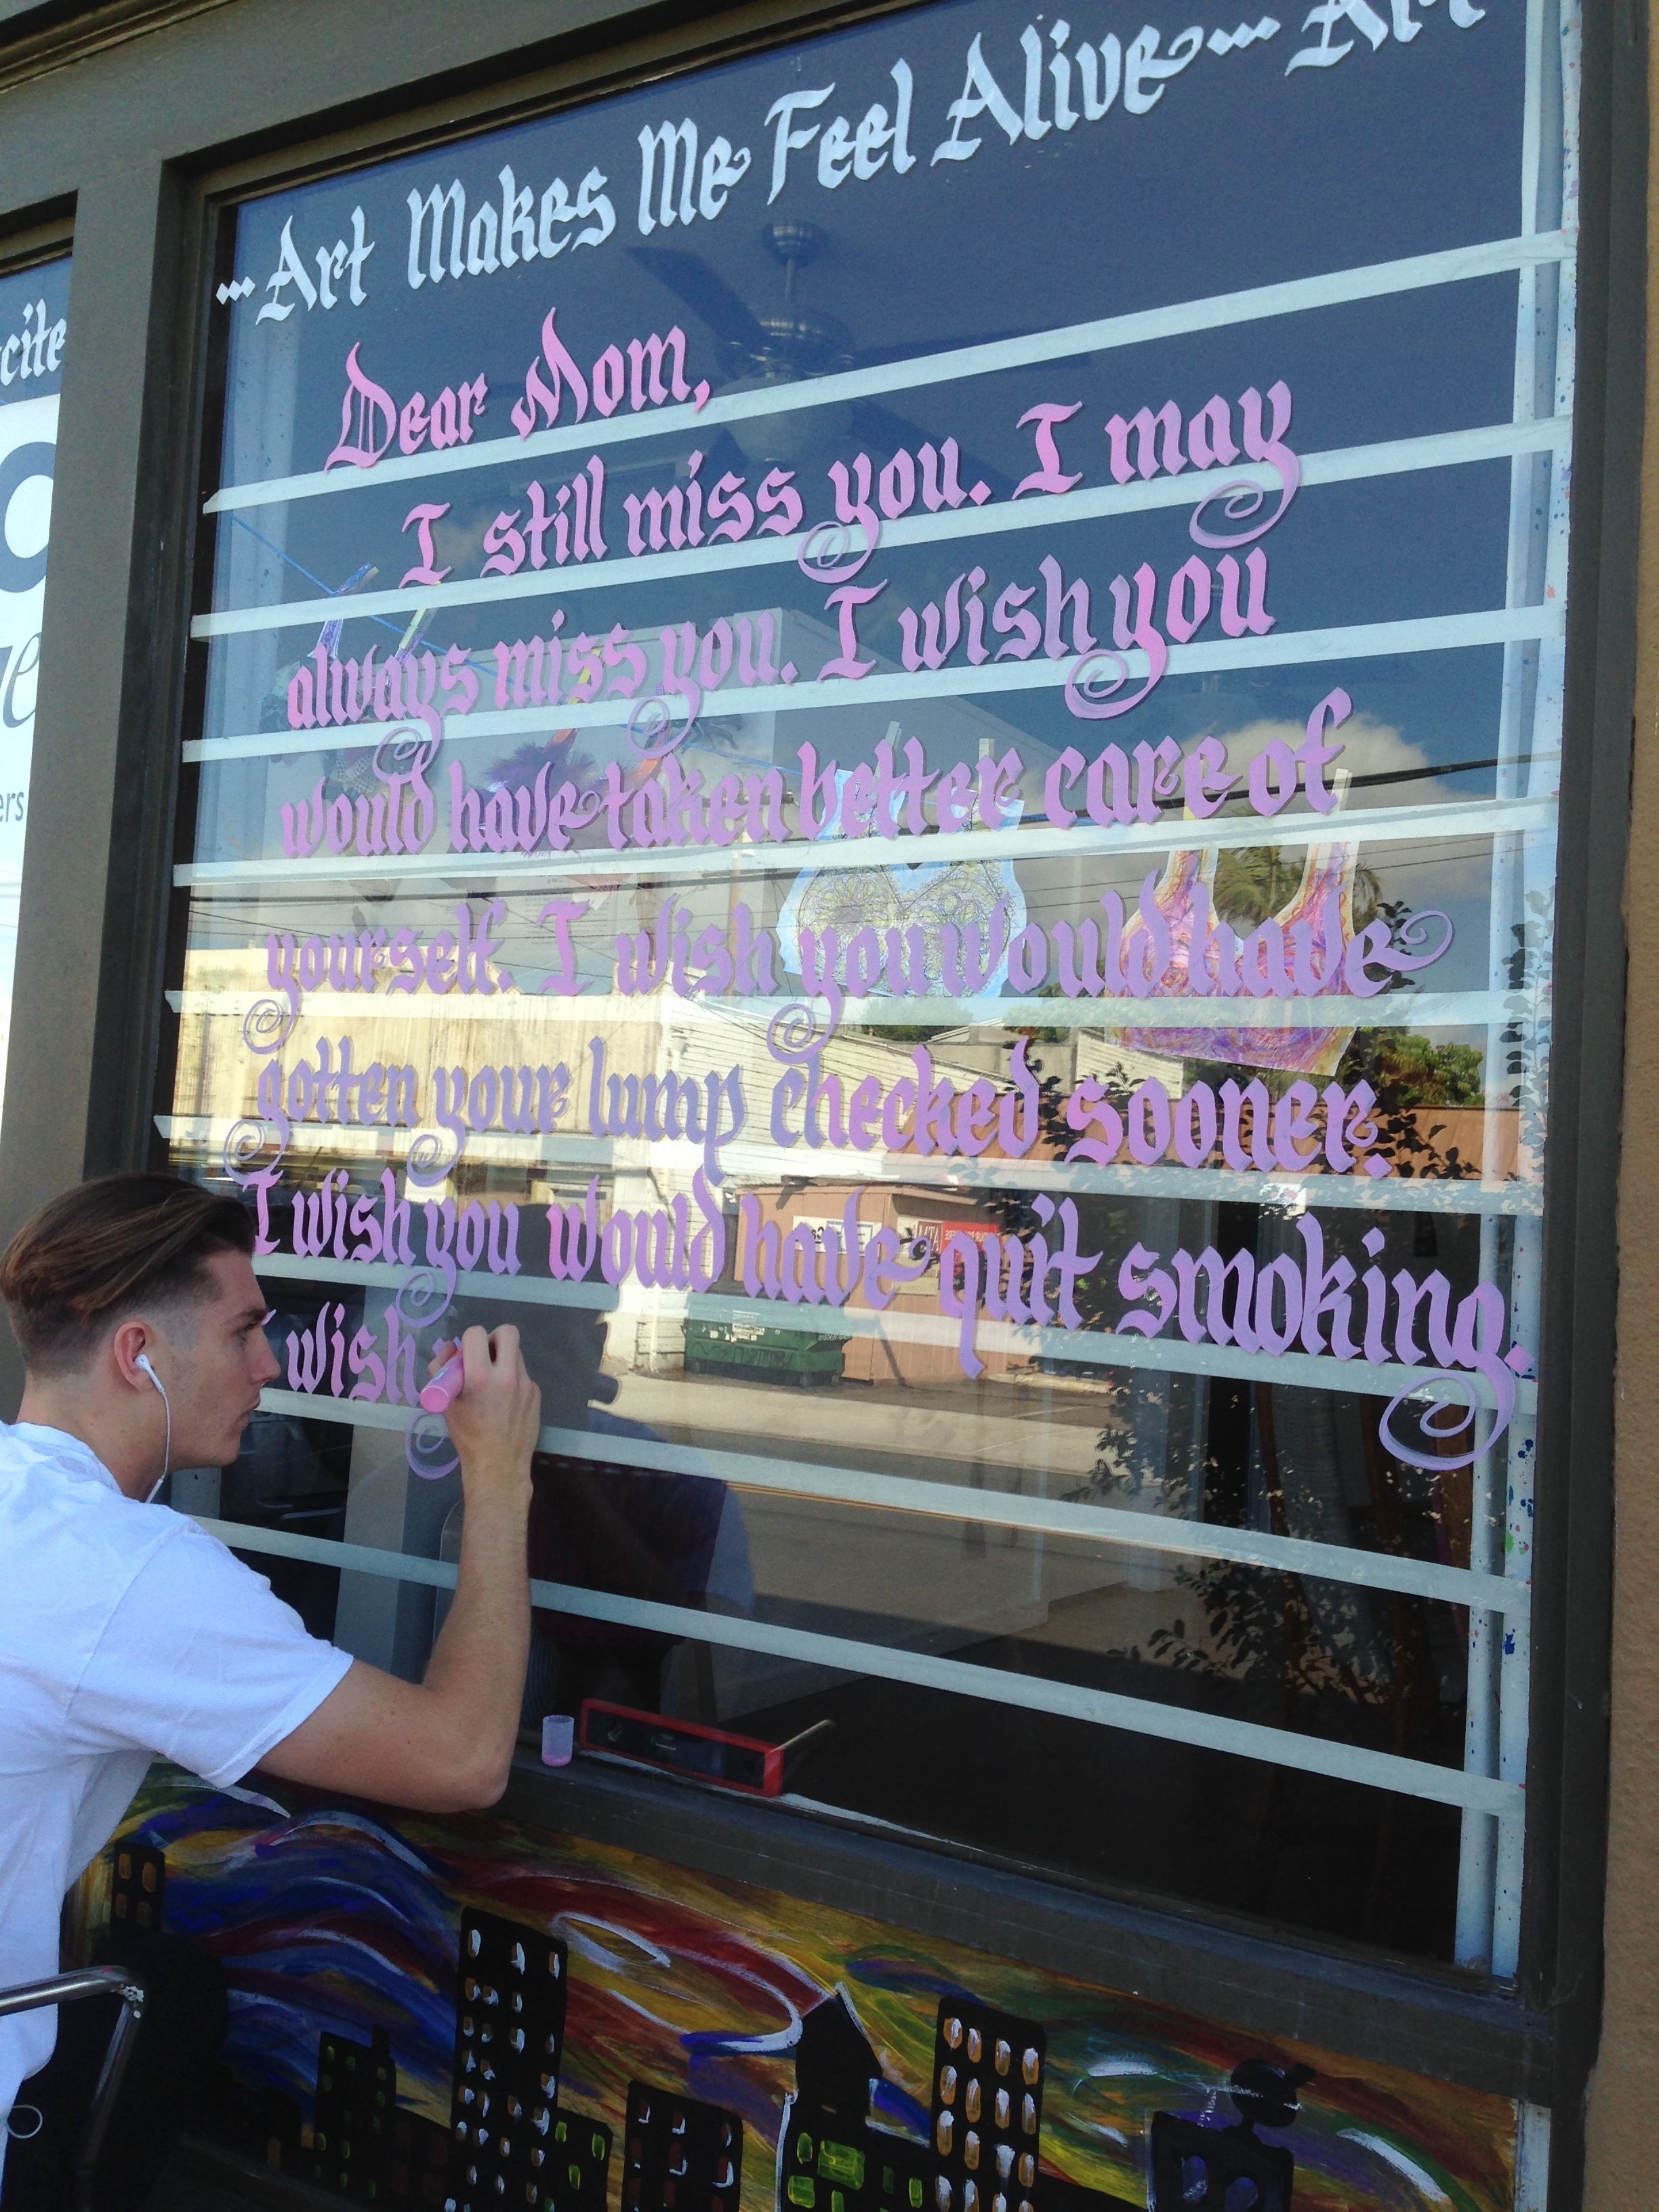 ...Art Makes Me Feel Alive... Art
Dear Mom,
I still miss you. I may
always miss you. I wish you
would have taken better care of
yourself. I wish you would have
gotten your lump checked sooner.
I wish you would have quit smoking.
I wish y
cite
ers